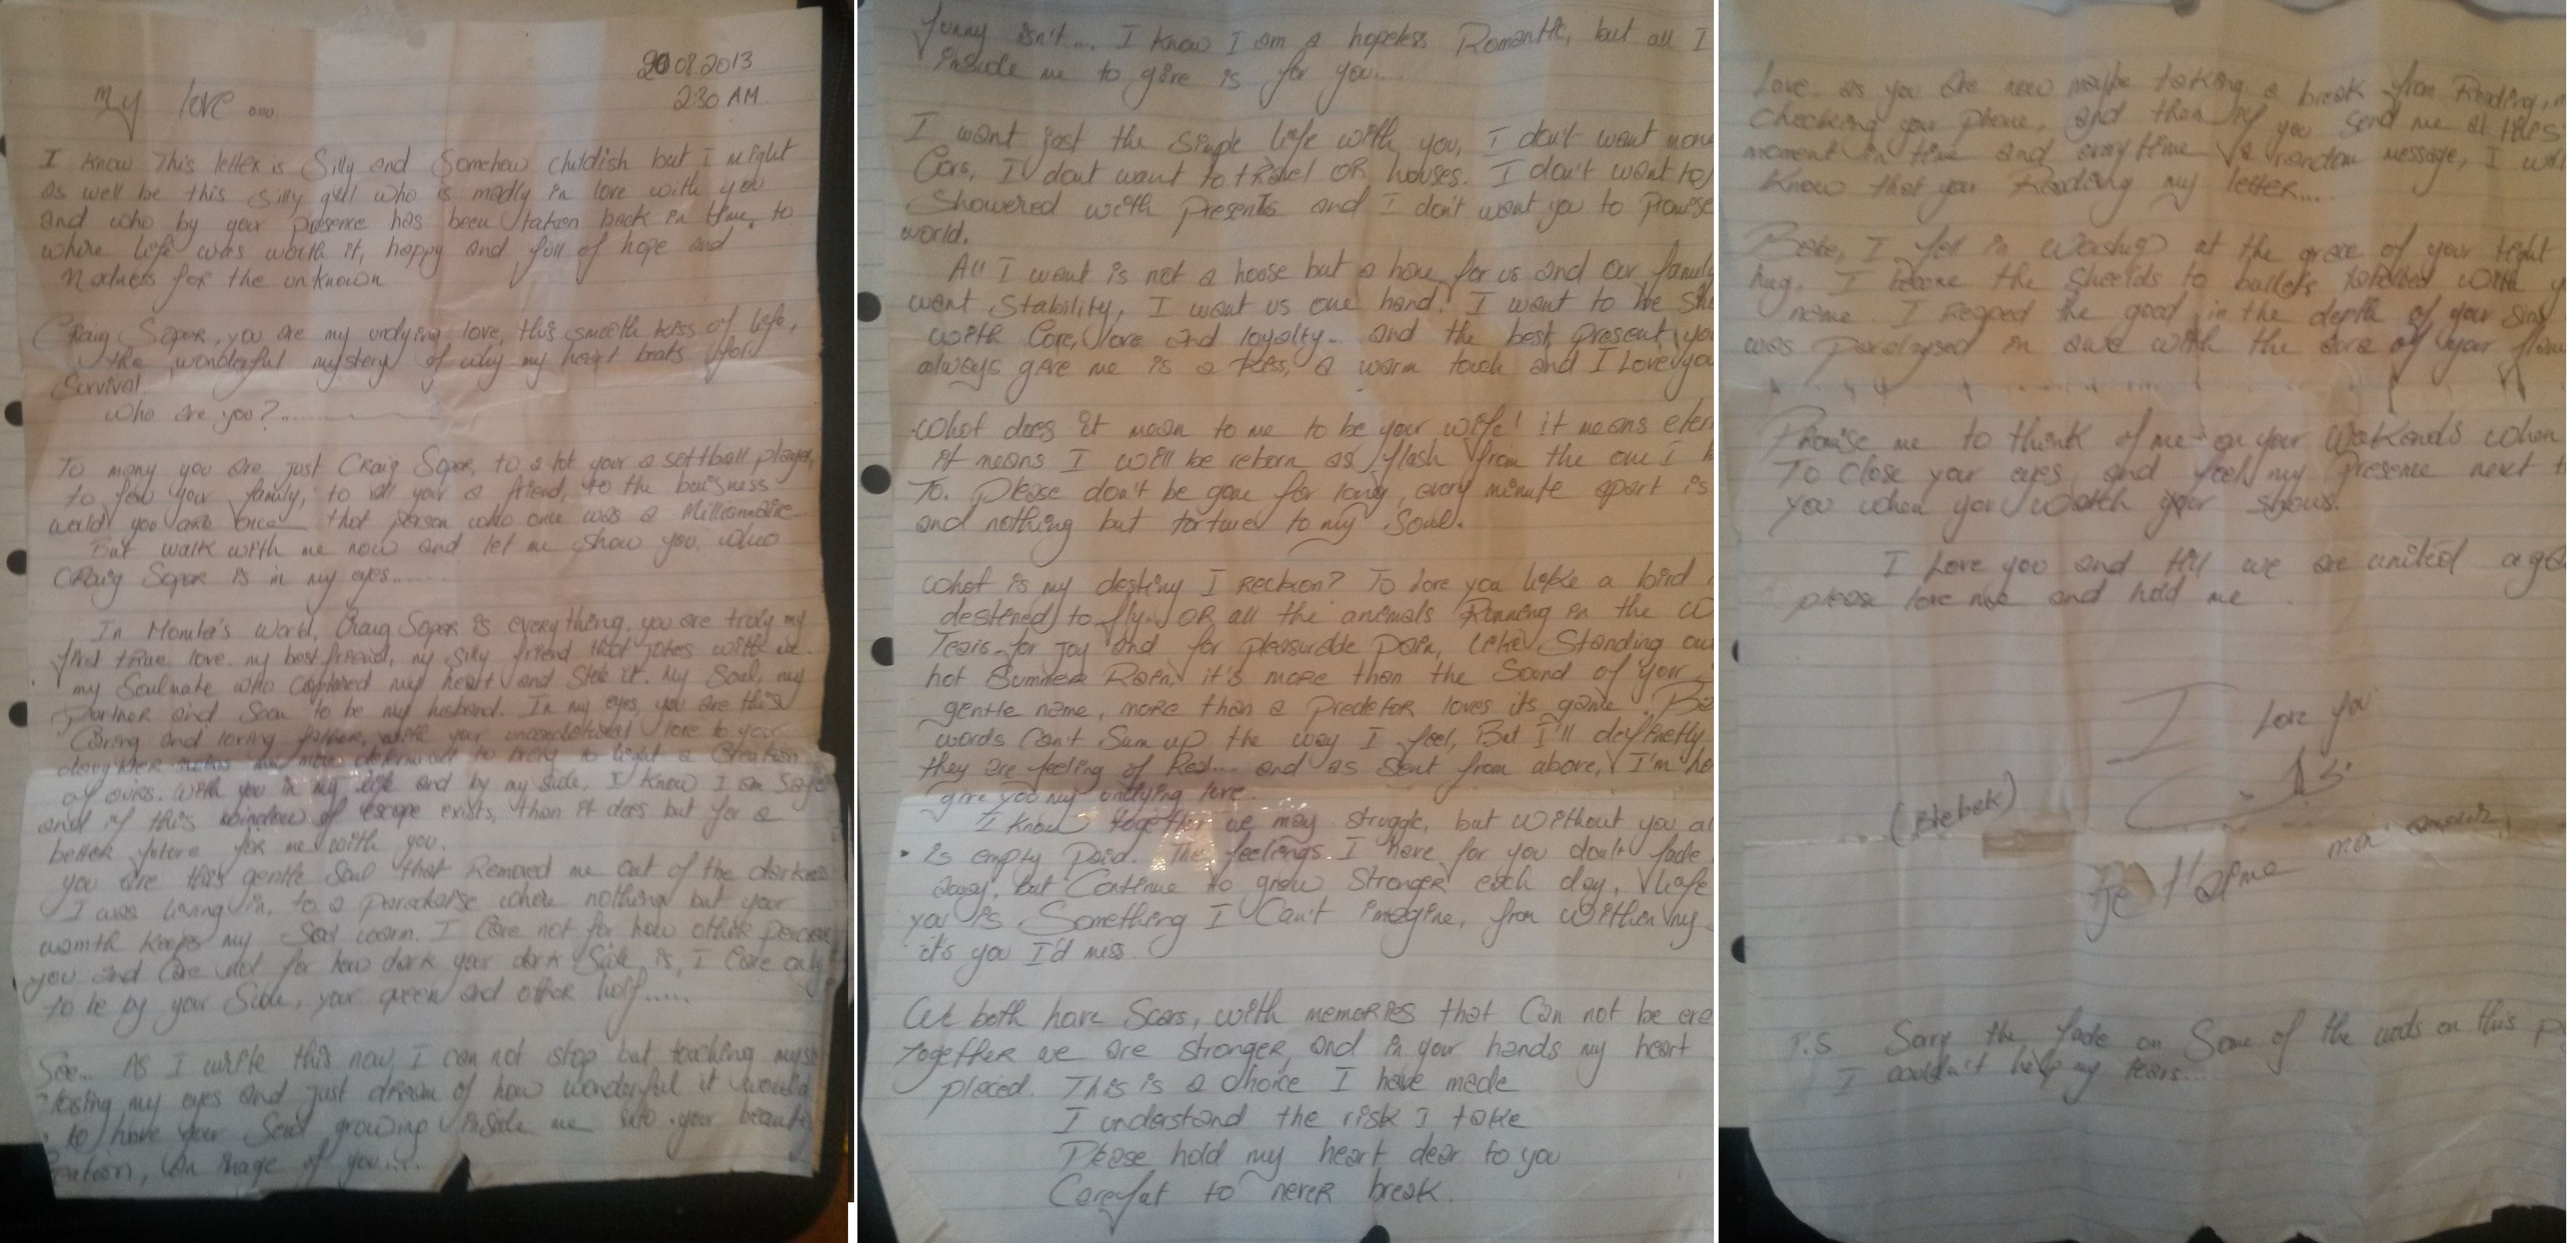 20 08 2013
2:30 AM
My love ...
I know This letter is Silly and Somehow childish but I might
as well be this silly girl who is madly in love with you
and who by your presence has been taken back in time, to
where life was worth it, happy and full of hope and
Madness for the unknown
Craig Soper, you are my undying love, this smooth kiss of life,
the wonderful mystery of why my heart beats for
Survival.
Who are you?..........
To many you are just Craig Soper, to a lot your a softball player,
to few your family, to all your a friend, to the business
world you are once that person who once was a Millionnaire...
But walk with me now and let me show you, who
Craig Soper is in my eyes......
In Monula's World, Craig Soper is everything, you are truly my
first true love. my best friend, my silly friend that jokes with me.
my Soulmate who captured my heart and Stole it. My Soul, my
Partner and Soon to be my husband. In my eyes, you are this
Caring and loving father, with your unconditional love to your
daughter makes me more determined to bring to light a Creation
of ours. With you in my life and by my side, I know I am Safe
and if this window of escape exists, than it does but for a
better future for me with you.
you are this gentle Soul that Removed me out of the darkness
I was living in, to a paradise where nothing but your
warmth keeps my Soul warm. I Care not for how others perceive
you and Care not for how dark your dark Side is, I Care only
to be by your Side, your queen and other half......
See... As I write this now, I can not stop but touching
closing my eyes and just dream of how wonderful it would
to have your Seed growing inside me into your
Creation, An image of you....
funny isn't... I know I am a hopeless Romantic, but all I
inside me to give is for you...
I want just the simple life with you, I don't want
Cars, I dont want to travel OR houses. I don't want to
Showered with presents and I don't want you to Promise
world.
All I want is not a house but a home for us and our family
want Stability, I want us one hand! I want to be
with Care, love and loyalty.. and the best present you
always gave me is a kiss, a warm touch and I Love you
What does it mean to me to be your wife! it means
it means I will be reborn as flash from the one I
To. Please don't be gone for long, every minute apart is
and nothing but torture to my Soul.
What is my destiny I Reckon? To love you like a bird
destened to fly. OR all the animals Running in the
Tears for joy and for pleasurable Pain, Like Standing
hot Summer Rain, it's more than the Sound of your
gentle name, more than a Predetor loves its game.
words Can't Sum up the way I feel, But I'll deffinetly
they are feeling of Real.... and as Sent from above, I'm
give you my undying love.
I know together we may struggle, but without you
is empty Paid. The feelings I have for you don't fade
away, but Continue to grow Stronger each day, life
you is Something I Can't imagine, from within my
it's you I'd miss.
We both have Scars, with memories that Can not be
together we are stronger, and in your hands my heart
placed. This is a choice I have made
I understand the risk I take
Please hold my heart dear to you
Carefat to never break.
Love, as you are now maybe taking a break from Reading,
checking your phone, and then if you send me at this
moment in time and everytime a random message, I will
know that your Reading my letter...
Babe, I fell in Worship at the grace of your tight
hug. I became the Sheelds to bullets tatooed with
name. I reaped the good in the depth of your Sins
was paralysed in awe with the of your
Promise me to think of me on your Weekends when
To Close your eyes and feel my Presence next
you when you watch your shows.
I Love you and till we are united
please love me and hold me
I Love you
(Bebek)
Je t'aime mon amour,
P.S Sorry the fade on Some of the words on this
I couldn't help my tears....